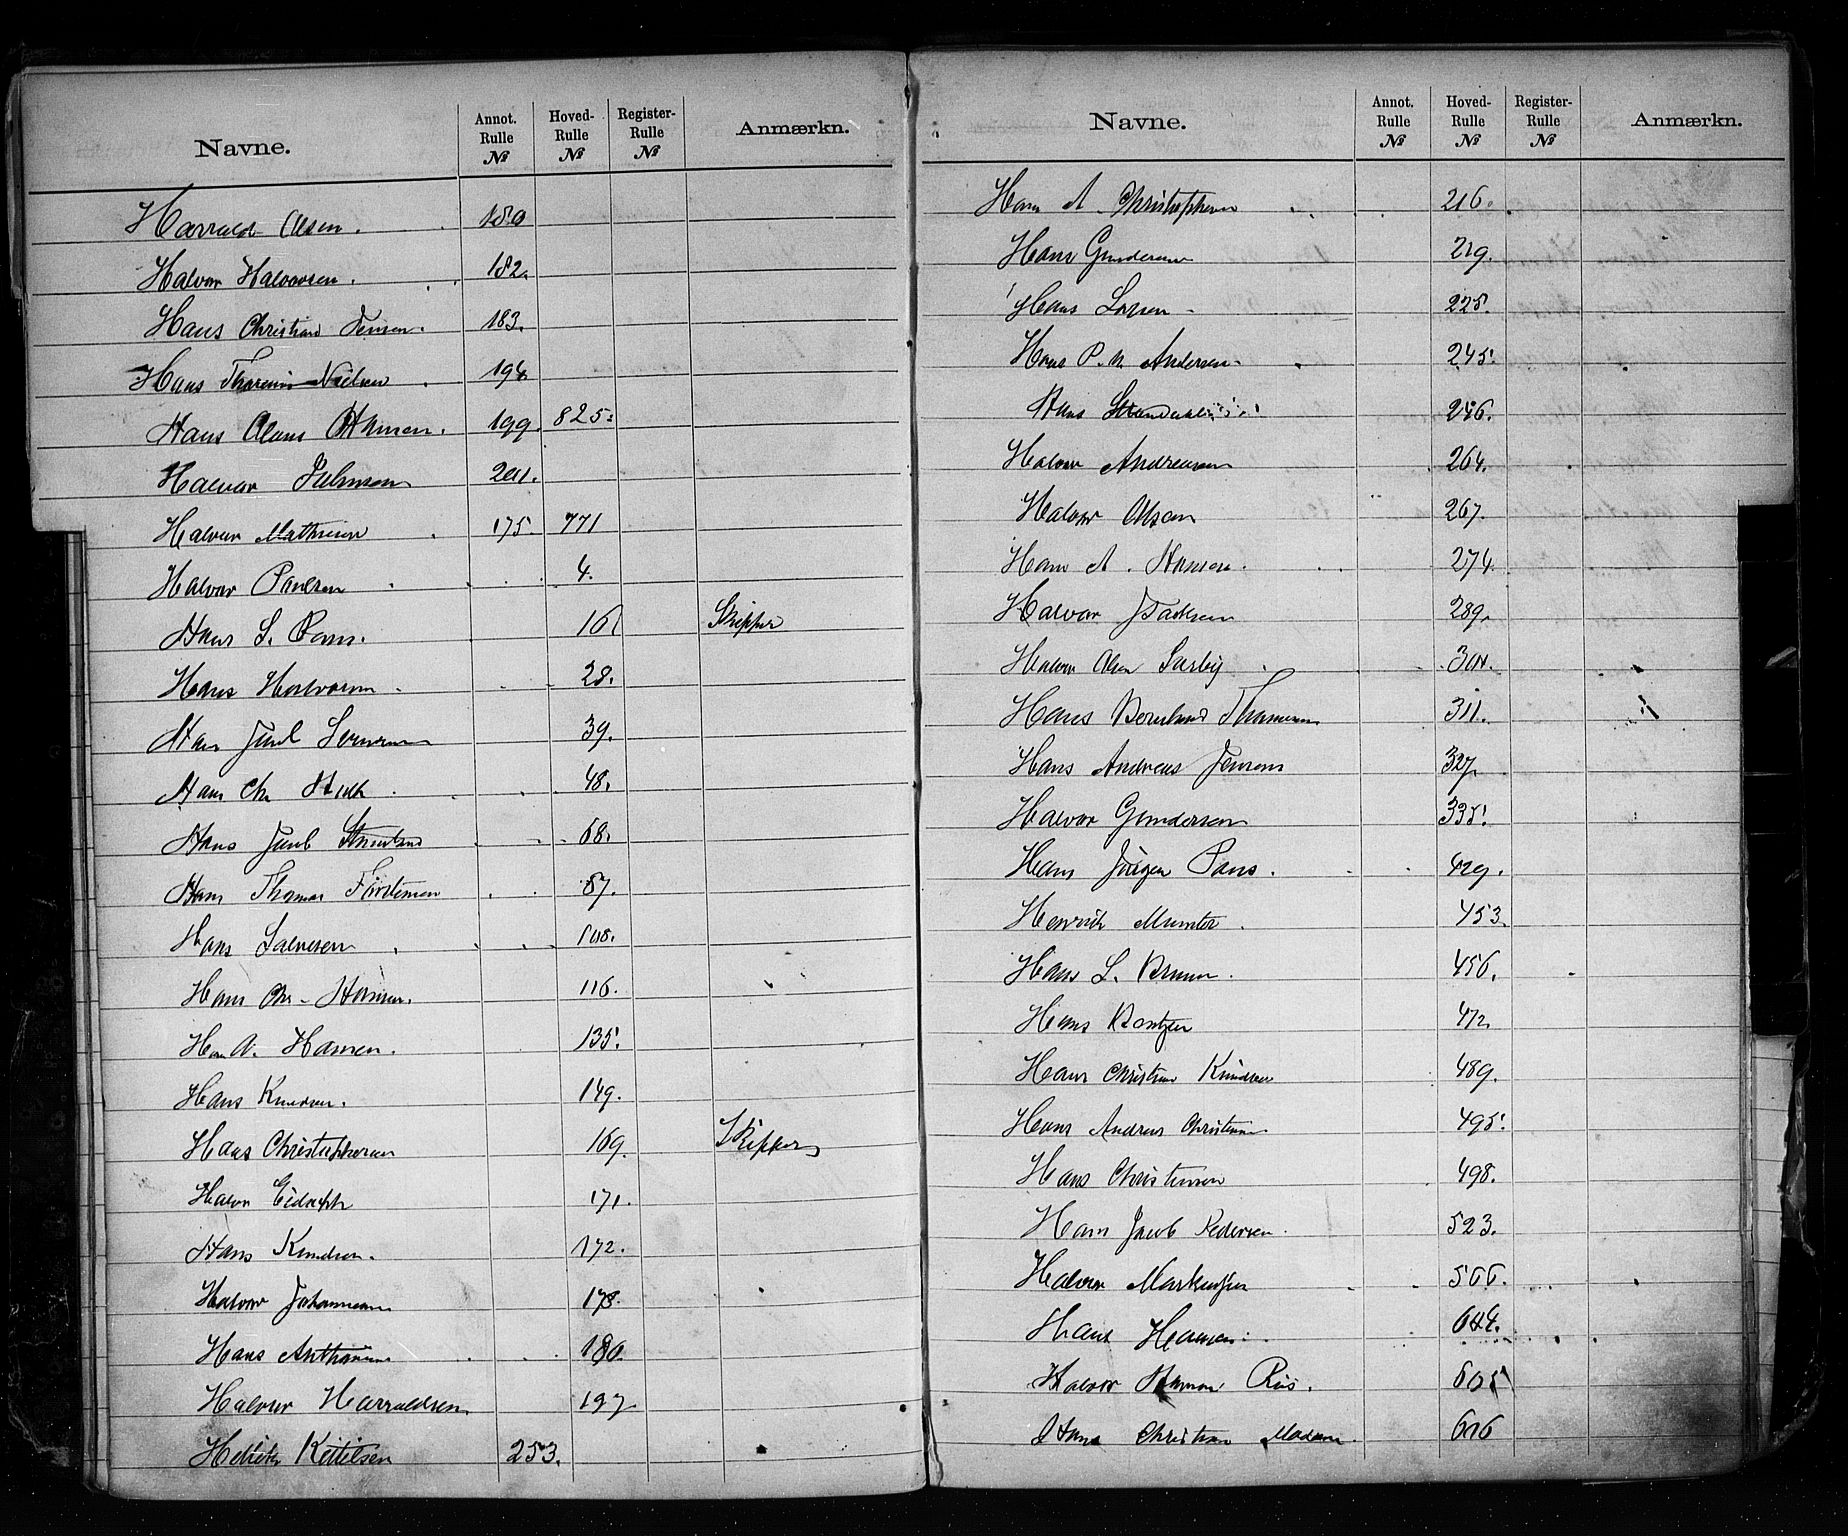 Navne. Annot. Rulle № Hoved-Rulle № Register-Rulle № Anmærkn.
Harrald Olsen. 180
Halvor Halvorsen. 182.
Hans Christian Jensen. 183.
Hans Nielsen 194
Hans Olaus Hansen. 199. 825.
Halvor 201.
Halvor Mathisen 175. 771
Halvor Paulsen 4.
Hans S. 16 Skipper
Hans Halvorsen 28.
Hans Juul Sørensen 39.
Hans Chr. 48.
Hans Juul 68.
Hans Thomas 87.
Hans Salvesen 108.
Hans Chr. Hansen. 116.
Hans A. Hansen. 135.
Hans Knudsen. 149.
Hans Christophersen 169. Skipper
Halvor 171.
Hans Knudsen. 172.
Halvor Johannesen 178.
Hans Anthonisen 186.
Halvor Harraldsen 197
Kittilsen 253.
Navne. Annot. Rulle № Hoved-Rulle № Register-Rulle № Anmærkn.
Hans A. Christophersen 216.
Hans Gundersen 219.
Hans Larsen 225.
Hans P. M. Andersen. 245.
Hans 246.
Halvor Andreasen 264.
Halvor Olsen 267.
Hans A. Hansen. 274.
Halvor Isaksen 289.
Halvor Olsen 304.
Hans Thomesen 311.
Hans Andreas Jensen 327.
Halvor Gundersen 335.
Hans Jörgen Paus. 429.
Henrik Munster. 453.
Hans L. Bruun. 456.
Hans Bentzen 472.
Hans Christian Knudsen 489.
Hans Andreas Christensen 495.
Hans Christensen 498.
Hans Jacob Pedersen. 523.
Halvor Markussen 566.
Hans Hansen. 604.
Halvor Hansen Riis. 605
Hans Christian Madsen. 606